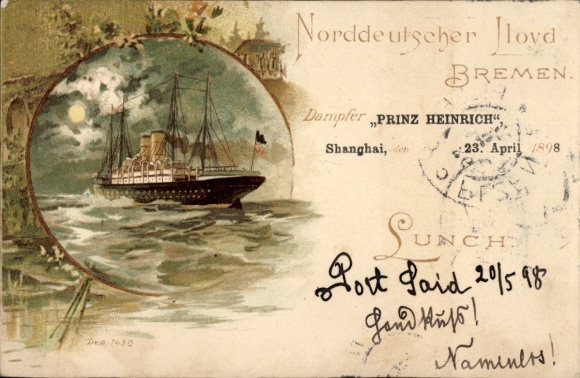 Norddeutscher Lloyd
BREMEN.
Dampfer „PRINZ HEINRICH“,
Shanghai, den 23. April 1898
LUNCH.
Port Said 20/5 98
Handkuß!
Namenlos!
Dep. 1430